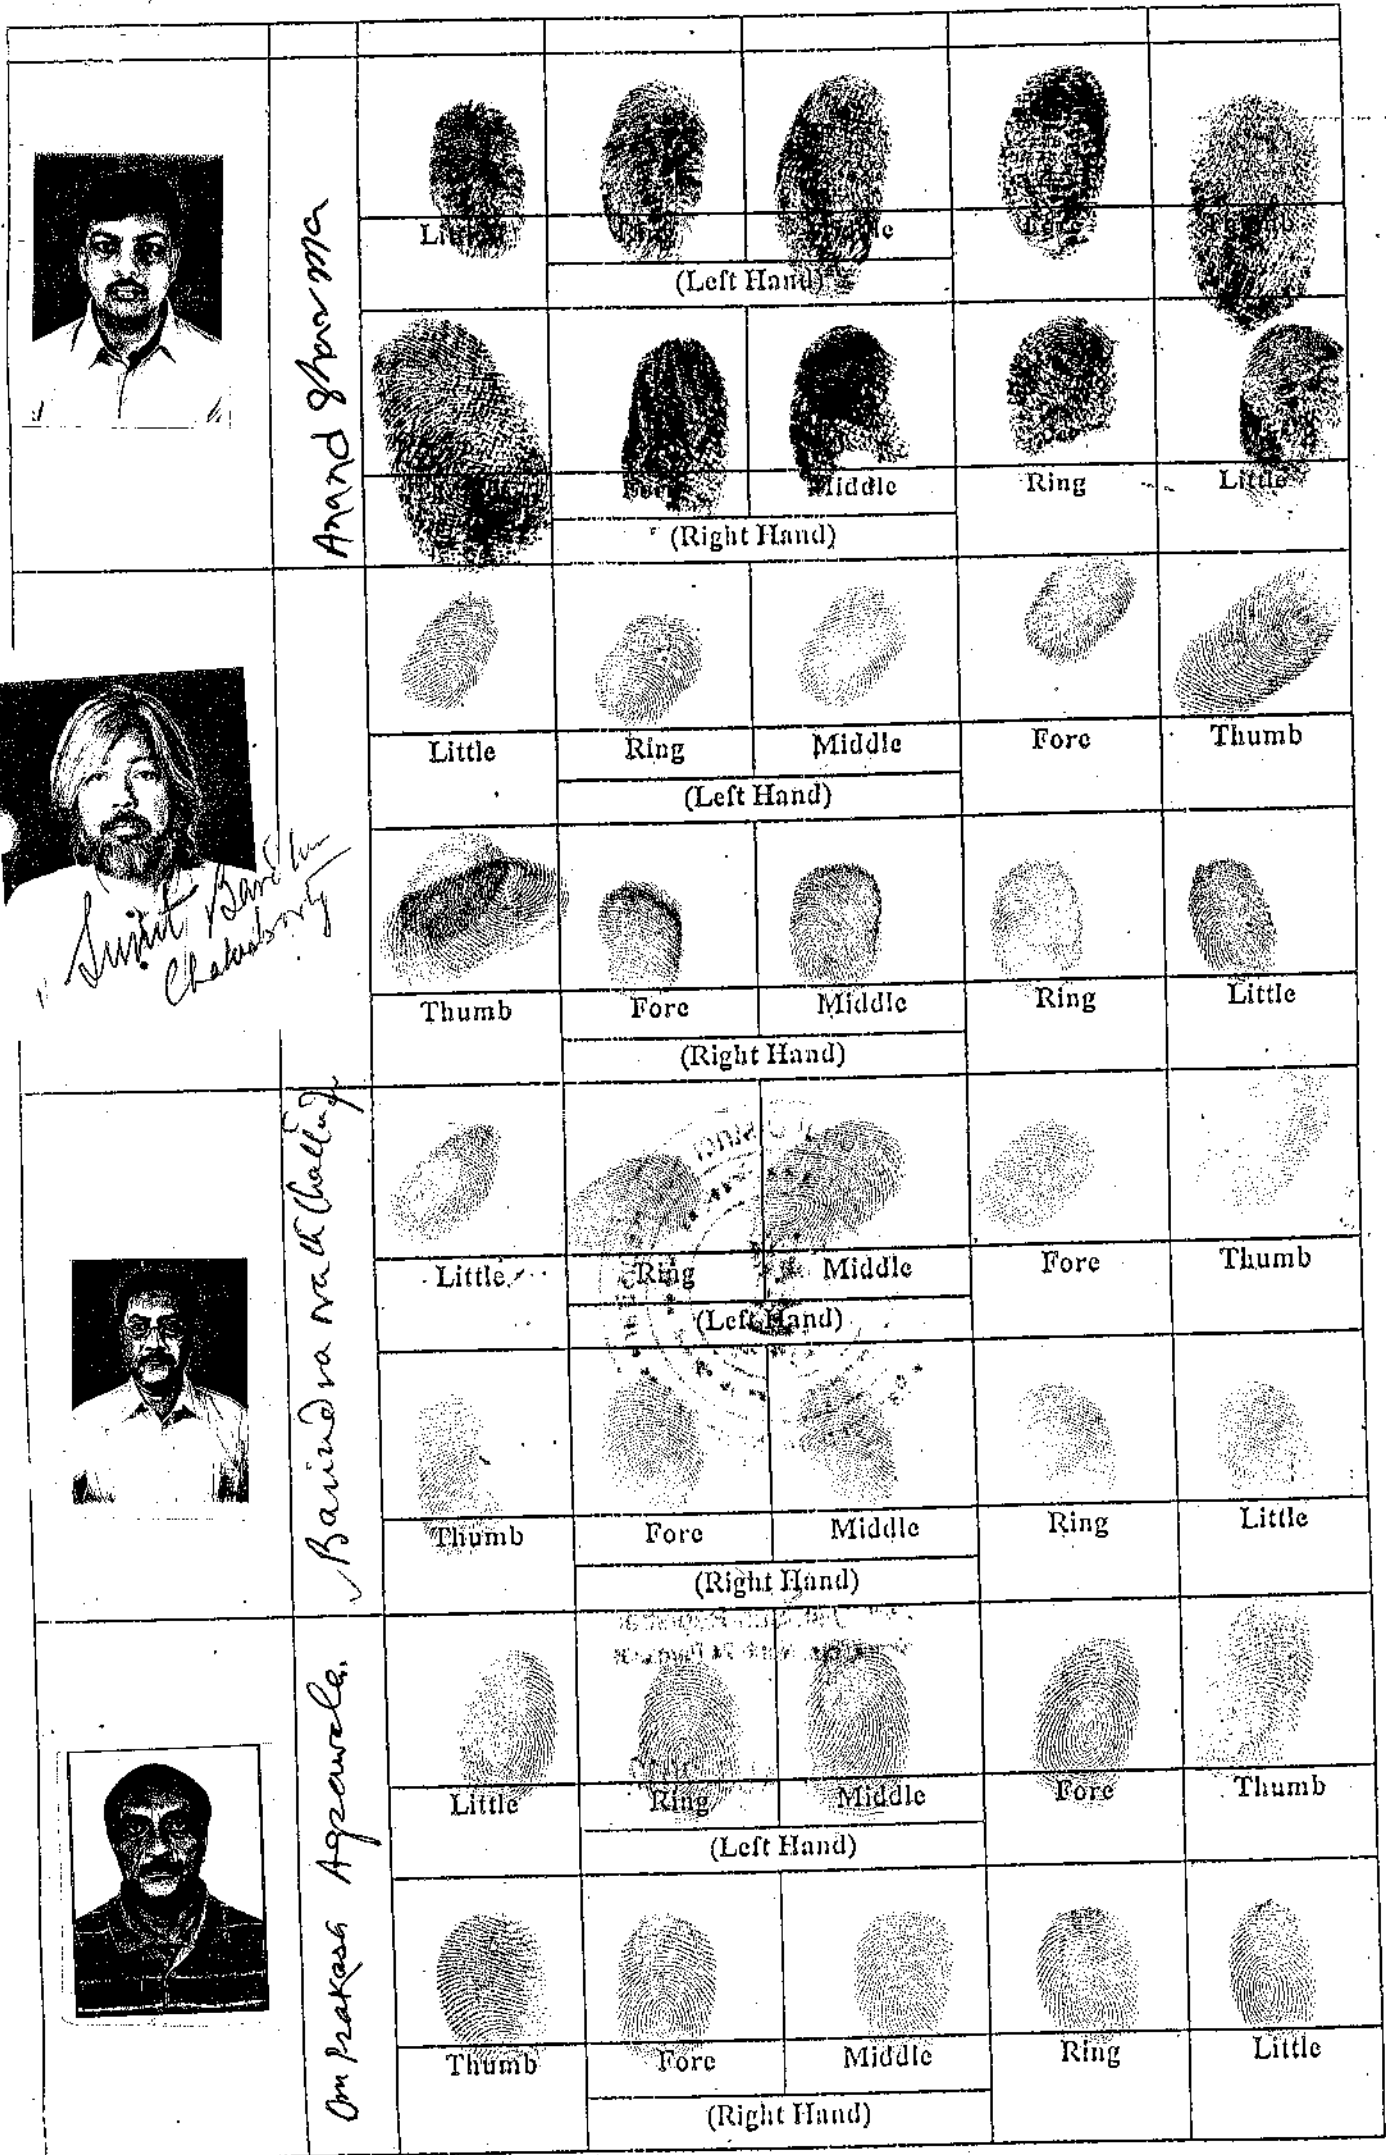 Anand Sharma
Little Ring Middle Fore Thumb
(Left Hand)
Fore Middle Ring Little
(Right Hand)
Sujit Bari
Chakraborty
Little Ring Middle Fore Thumb
(Left Hand)
Thumb Fore Middle Ring Little
(Right Hand)
Barindra nath
Little Ring Middle Fore Thumb
(Left Hand)
Thumb Fore Middle Ring Little
(Right Hand)
Om Prakash Agrawala.
Little Ring Middle Fore Thumb
(Left Hand)
Thumb Fore Middle Ring Little
(Right Hand)